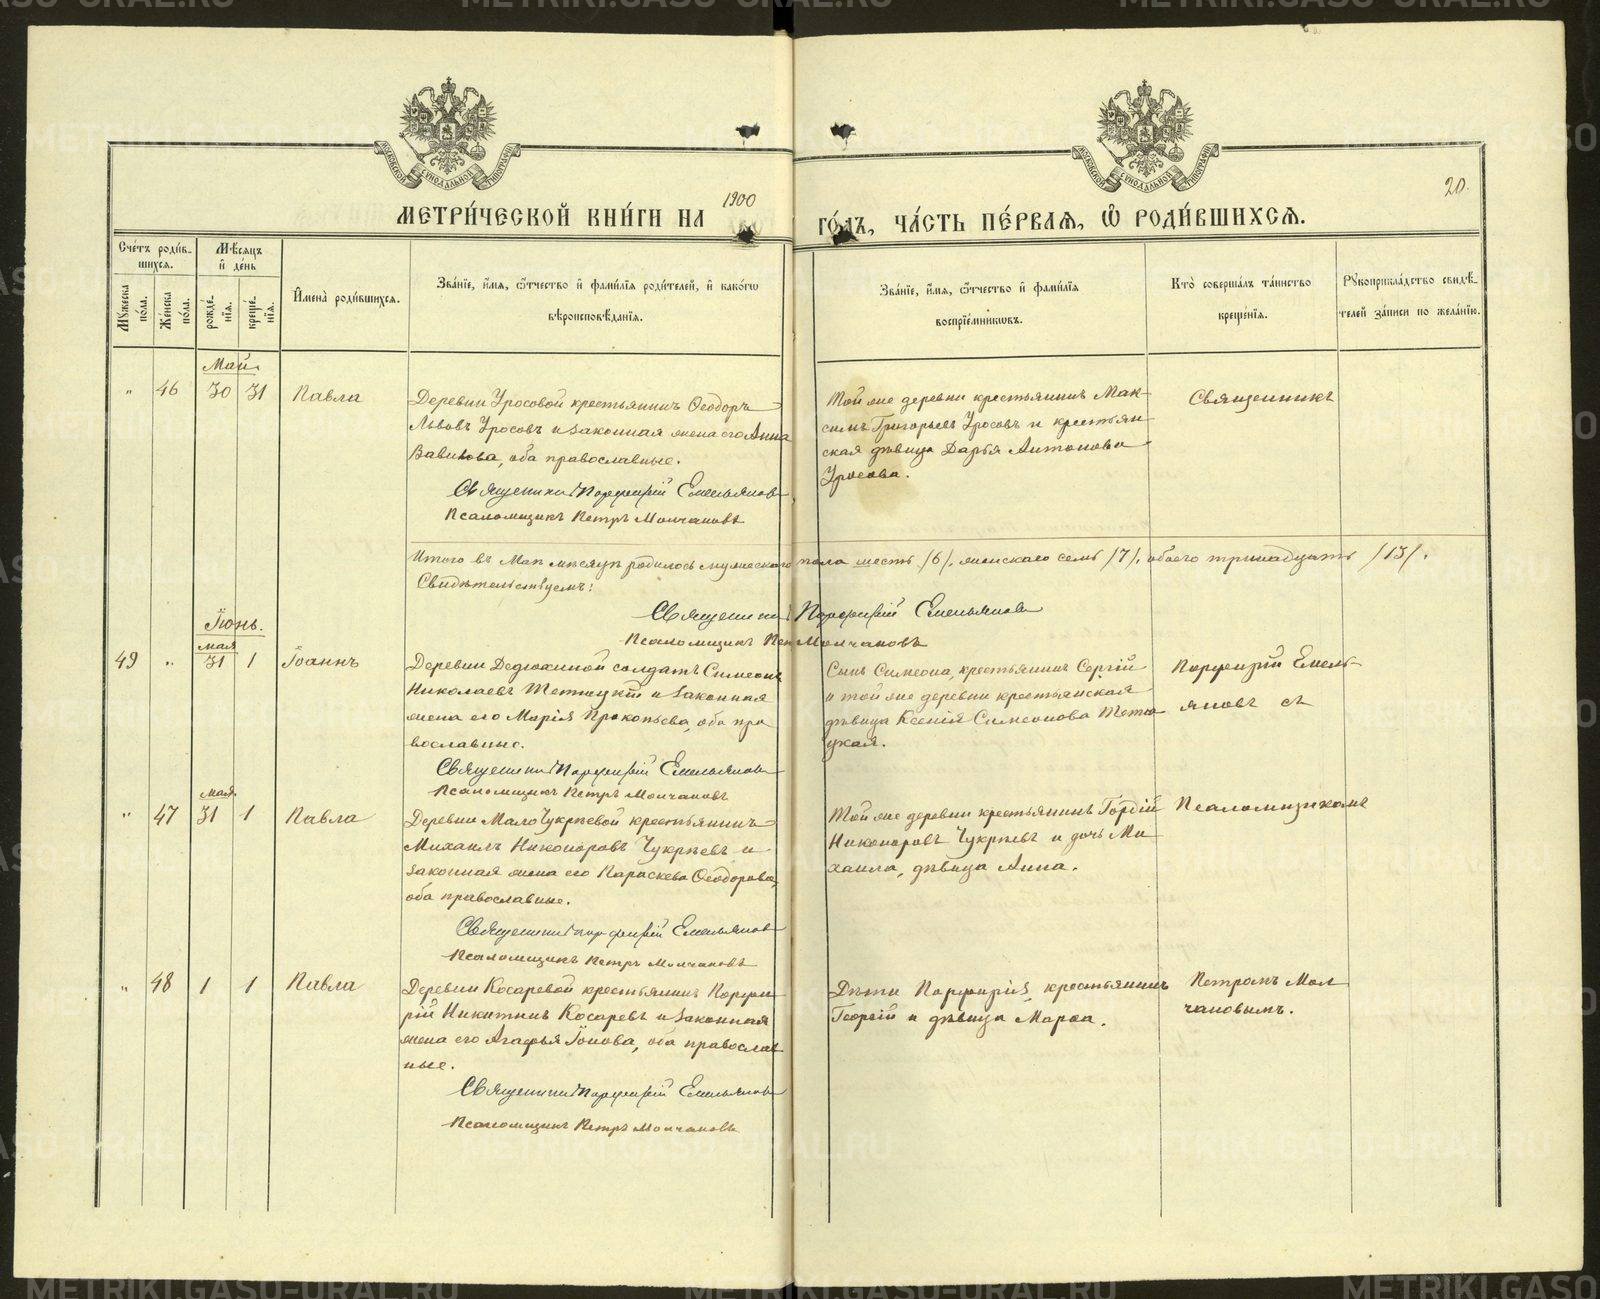 МЕТРИ́ЧЕСКОЙ КНИ́ГИ НА 1900 ГО́ДЪ, ЧА́СТЬ ПЕ́РВАѦ, Ѽ РОДИ́ВШИХСѦ.
20.
МОСКОВСКОЙ СѴНОДАЛЬНОЙ ТИПОГРАФІИ
МОСКОВСКОЙ СѴНОДАЛЬНОЙ ТИПОГРАФІИ
Сче́тъ роди́вшихсѧ.
Мꙋжеска по́ла.
Же́нска по́ла.
Мѣ́сѧцъ и҆ де́нь
рожде́нїѧ.
креще́нїѧ.
И҆мена̀ роди́вшихсѧ.
Зва́нїе, и҆́мѧ, ѻ҆́тчество и҆ фами́лїѧ роди́телей, и҆ како́гѡ
вѣроисповѣ́данїѧ.
Зва́нїе, и҆́мѧ, ѻ҆́тчество и҆ фами́лїѧ
воспрїе́мникѡвъ.
Кто̀ соверша́лъ та́инство
креще́нїѧ.
Рꙋкоприкла́дство свидѣ́-
телей за́писи по жела́нїю.
Май.
" 46 30 31 Павла
Деревни Уросовой крестьянинъ Ѳеодоръ
Львовъ Уросовъ и законная жена его Анна
Вавилова, оба православные.
Священникъ Порфирій Емельяновъ
Псаломщикъ Петръ Молчановъ
Той же деревни крестьянинъ Мак-
симъ Григорьевъ Уросовъ и крестьян-
ская дѣвица Дарья Антонова
Уросова.
Священникъ
Итого въ Маѣ мѣсяцѣ родилось мужескаго пола шесть /6/, женскаго семь /7/, обоего тринадцать /13/.
Свидѣтельствуемъ:
Священникъ Порфирій Емельяновъ
Псаломщикъ Петръ Молчановъ
Іюнь.
мая
49 " 31 1 Іоаннъ
Деревни Дедюхиной солдатъ Симеонъ
Николаевъ и законная
жена его Марія Прокопьева, оба пра
вославные.
Священникъ Порфирій Емельяновъ
Псаломщикъ Петръ Молчановъ
Сынъ Симеона, крестьянинъ Сергій
и той же деревни крестьянская
дѣвица Ксенія Симеонова
цкая.
Порфирій Емель-
яновъ съ
мая
" 47 31 1 Павла
Деревни Мало Чукрѣевой крестьянинъ
Михаилъ Никоноровъ Чукрѣевъ и
законная жена его Параскева Ѳеодорова,
оба православные.
Священникъ Порфирій Емельяновъ
Псаломщикъ Петръ Молчановъ
Той же деревни крестьянинъ Гордій
Никоноровъ Чукрѣевъ и дочь Ми-
хаила, дѣвица Анна.
Псаломщикомъ
" 48 1 1 Павла
Деревни Косаревой крестьянинъ Порфи-
рій Никитинъ Косаревъ и законная
жена его Агафья Іонова, оба православ
ные.
Священникъ Порфирій Емельяновъ
Псаломщикъ Петръ Молчановъ
Дѣти Порфирія, крестьянинъ
Георгій и дѣвица Марѳа.
Петромъ Мол
чановымъ.
METRIKI.GASO-URAL.RU